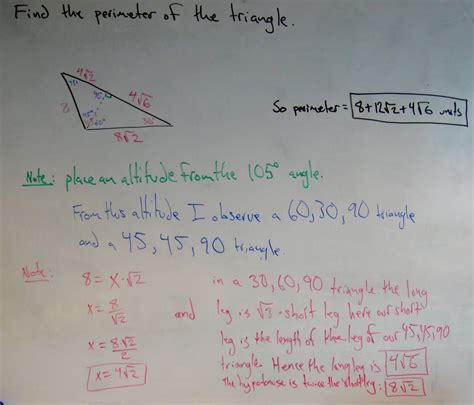 Find the perimeter of the triangle.
4√2
45°
90°
4√6
8
45°
105°
60°
30°
8√2
So perimeter = 8+12√2+4√6 units
Note: place an altitude from the 105° angle.
From this altitude I observe a 60,30,90 triangle
and a 45,45,90 triangle.
Note: 8 = x·√2
x = 8/√2
x = 8√2/2
x = 4√2
and
in a 30,60,90 triangle the long
leg is √3·short leg. here our short
leg is the length of the leg of our 45,45,90
triangle. Hence the long leg is 4√6
The hypotenuse is twice the short leg: 8√2